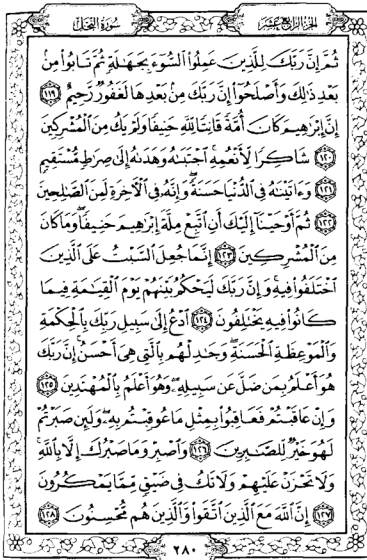 الجزء الرابع عشر
سورة النحل
ثُمَّ إِنَّ رَبَّكَ لِلَّذِينَ عَمِلُوا۟ ٱلسُّوٓءَ بِجَهَـٰلَةٍ ثُمَّ تَابُوا۟ مِنۢ
بَعْدِ ذَٰلِكَ وَأَصْلَحُوٓا۟ إِنَّ رَبَّكَ مِنۢ بَعْدِهَا لَغَفُورٌ رَّحِيمٌ ١١٩
إِنَّ إِبْرَٰهِيمَ كَانَ أُمَّةً قَانِتًا لِّلَّهِ حَنِيفًا وَلَمْ يَكُ مِنَ ٱلْمُشْرِكِينَ
١٢٠ شَاكِرًا لِّأَنْعُمِهِ ۚ ٱجْتَبَىٰهُ وَهَدَىٰهُ إِلَىٰ صِرَٰطٍ مُّسْتَقِيمٍ
١٢١ وَءَاتَيْنَـٰهُ فِى ٱلدُّنْيَا حَسَنَةً ۖ وَإِنَّهُۥ فِى ٱلْـَٔاخِرَةِ لَمِنَ ٱلصَّـٰلِحِينَ
١٢٢ ثُمَّ أَوْحَيْنَآ إِلَيْكَ أَنِ ٱتَّبِعْ مِلَّةَ إِبْرَٰهِيمَ حَنِيفًا ۖ وَمَا كَانَ
مِنَ ٱلْمُشْرِكِينَ ١٢٣ إِنَّمَا جُعِلَ ٱلسَّبْتُ عَلَى ٱلَّذِينَ
ٱخْتَلَفُوا۟ فِيهِ ۚ وَإِنَّ رَبَّكَ لَيَحْكُمُ بَيْنَهُمْ يَوْمَ ٱلْقِيَـٰمَةِ فِيمَا
كَانُوا۟ فِيهِ يَخْتَلِفُونَ ١٢٤ ٱدْعُ إِلَىٰ سَبِيلِ رَبِّكَ بِٱلْحِكْمَةِ
وَٱلْمَوْعِظَةِ ٱلْحَسَنَةِ ۖ وَجَـٰدِلْهُم بِٱلَّتِى هِىَ أَحْسَنُ ۚ إِنَّ رَبَّكَ
هُوَ أَعْلَمُ بِمَن ضَلَّ عَن سَبِيلِهِۦ ۖ وَهُوَ أَعْلَمُ بِٱلْمُهْتَدِينَ ١٢٥
وَإِنْ عَاقَبْتُمْ فَعَاقِبُوا۟ بِمِثْلِ مَا عُوقِبْتُم بِهِۦ ۖ وَلَئِن صَبَرْتُمْ
لَهُوَ خَيْرٌ لِّلصَّـٰبِرِينَ ١٢٦ وَٱصْبِرْ وَمَا صَبْرُكَ إِلَّا بِٱللَّهِ ۚ
وَلَا تَحْزَنْ عَلَيْهِمْ وَلَا تَكُ فِى ضَيْقٍ مِّمَّا يَمْكُرُونَ
١٢٧ إِنَّ ٱللَّهَ مَعَ ٱلَّذِينَ ٱتَّقَوا۟ وَّٱلَّذِينَ هُم مُّحْسِنُونَ ١٢٨
٢٨٠